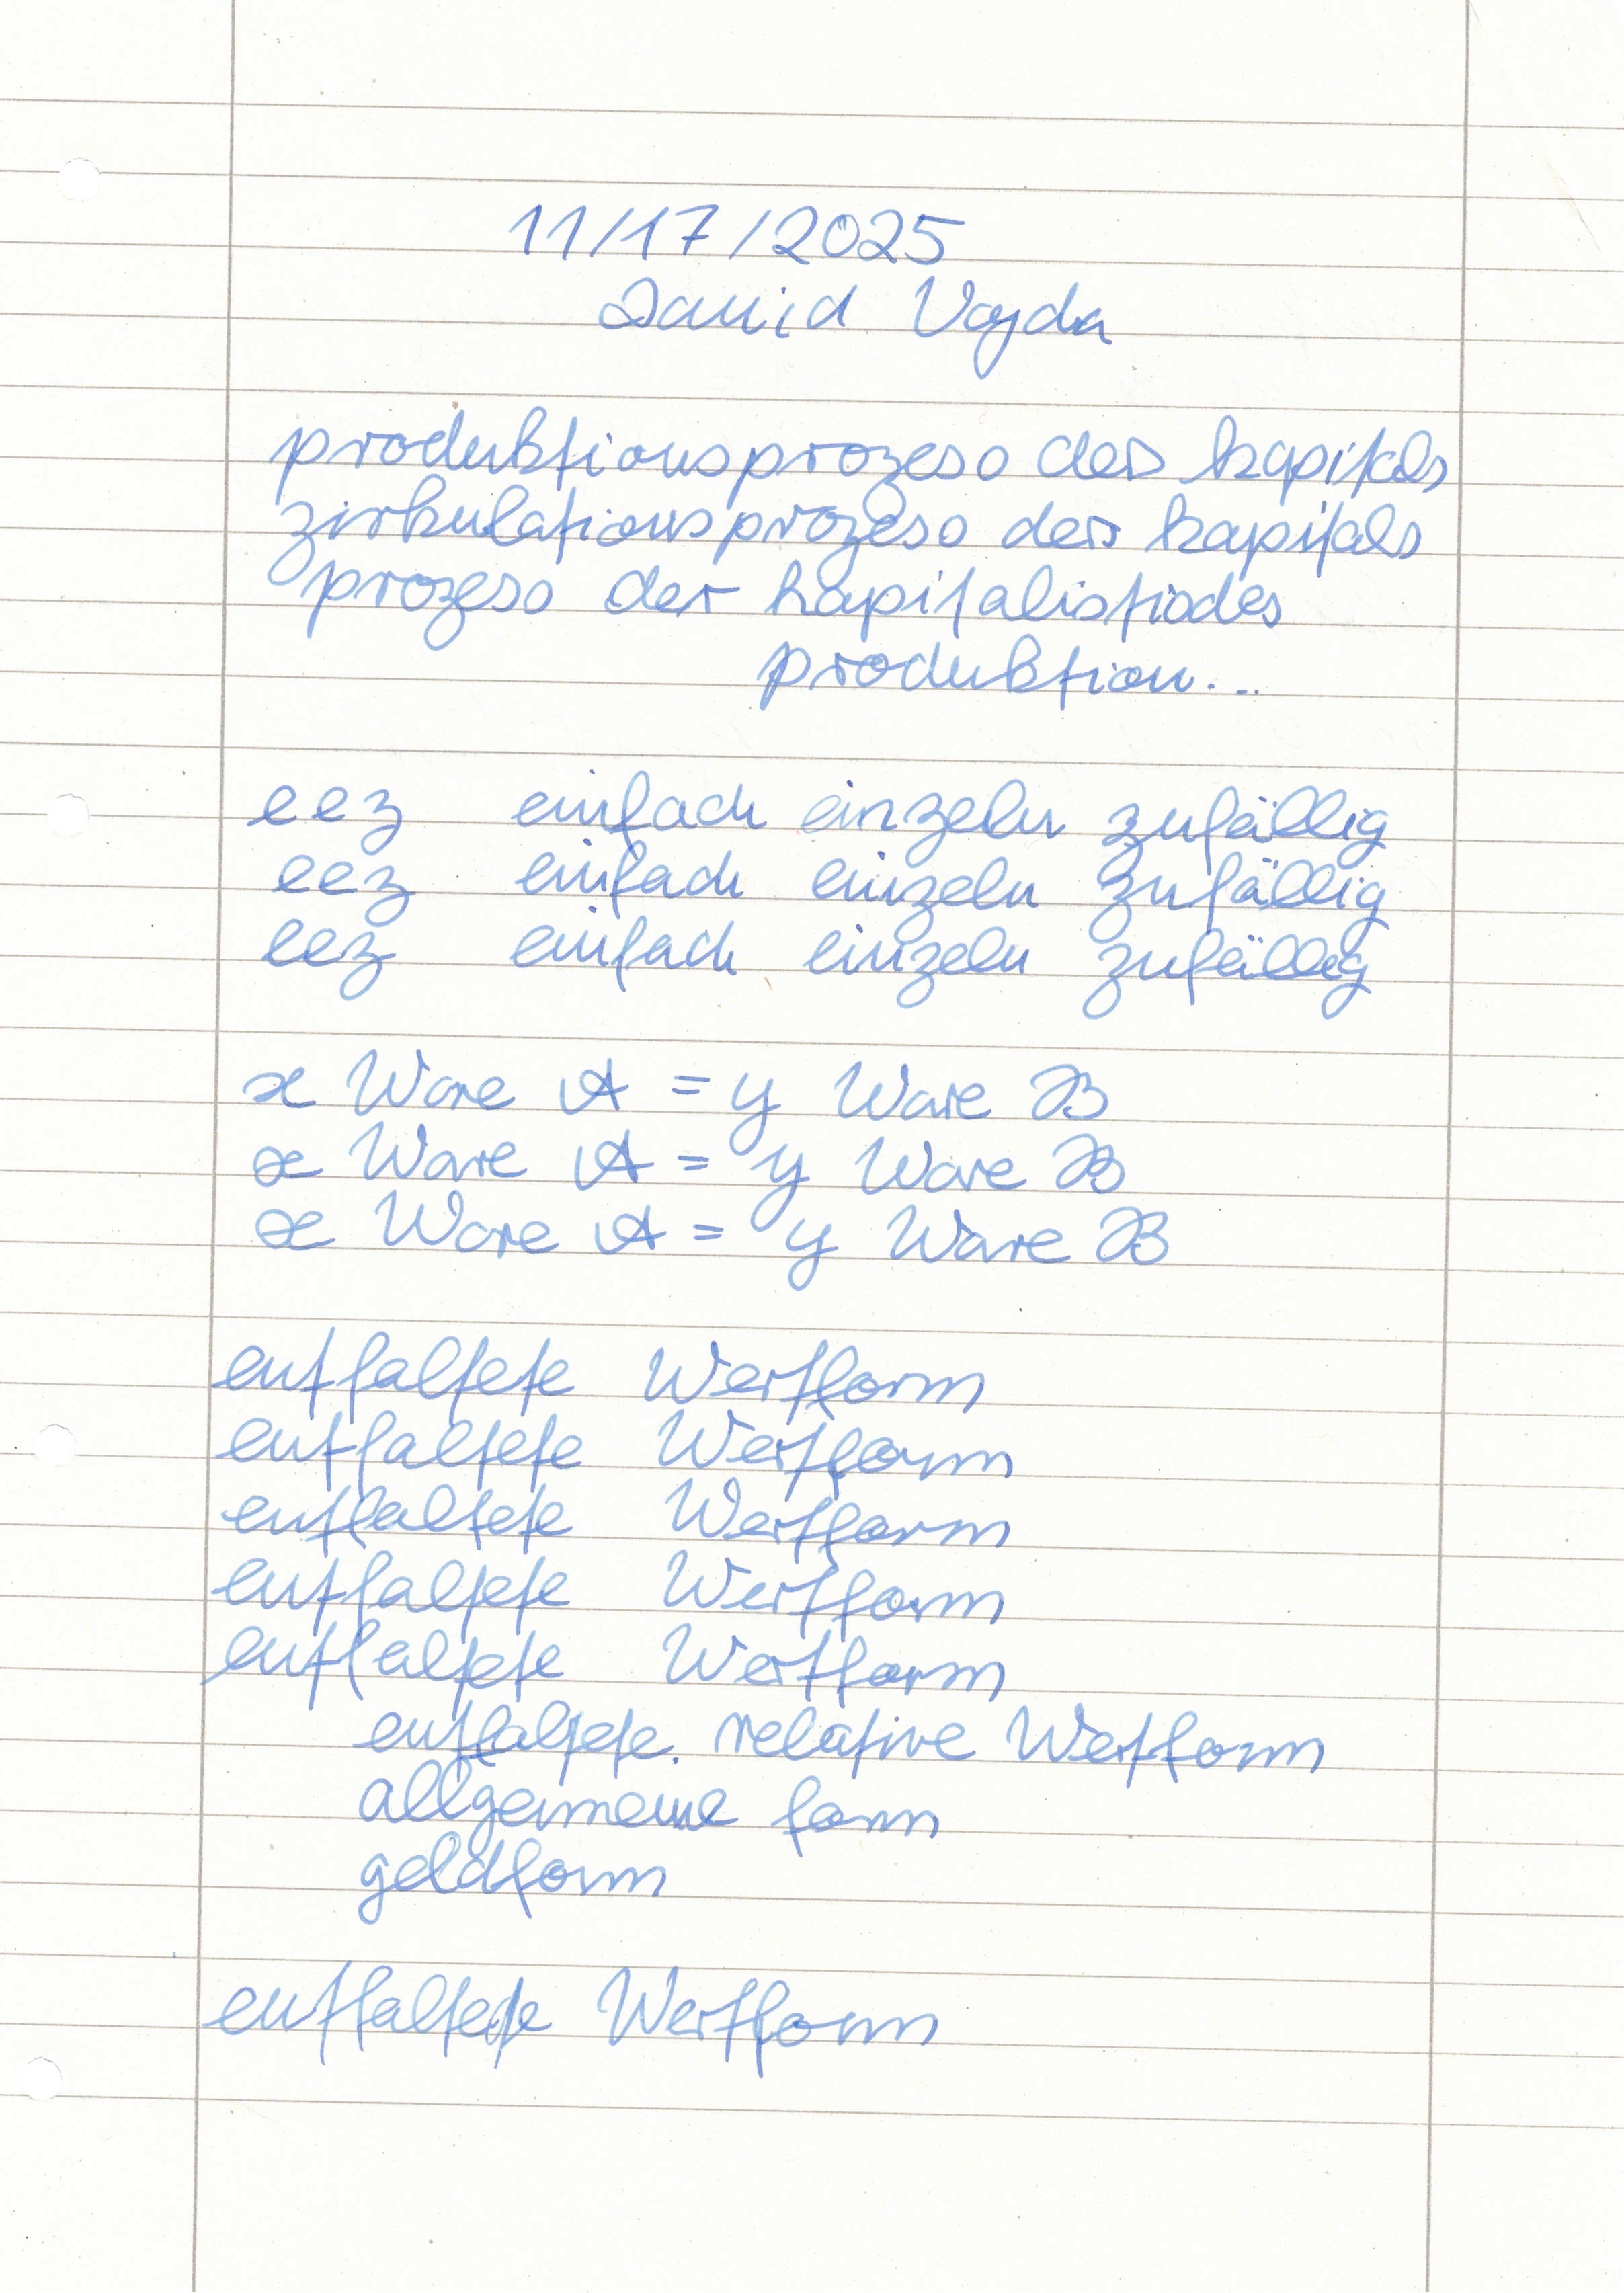 11/17/2025
David Vajda
produktionsprozess des kapitals
zirkulationsprozess des kapitals
prozess der kapitalistisches
produktion...
eez einfach einzeln zufällig
eez einfach einzeln zufällig
eez einfach einzeln zufällig
x Ware A = y Ware B
x Ware A = y Ware B
x Ware A = y Ware B
entfaltete Wertform
entfaltete Wertform
entfaltete Wertform
entfaltete Wertform
entfaltete Wertform
entfaltete. relative Wertform
allgemeine form
geldform
entfaltete Wertform